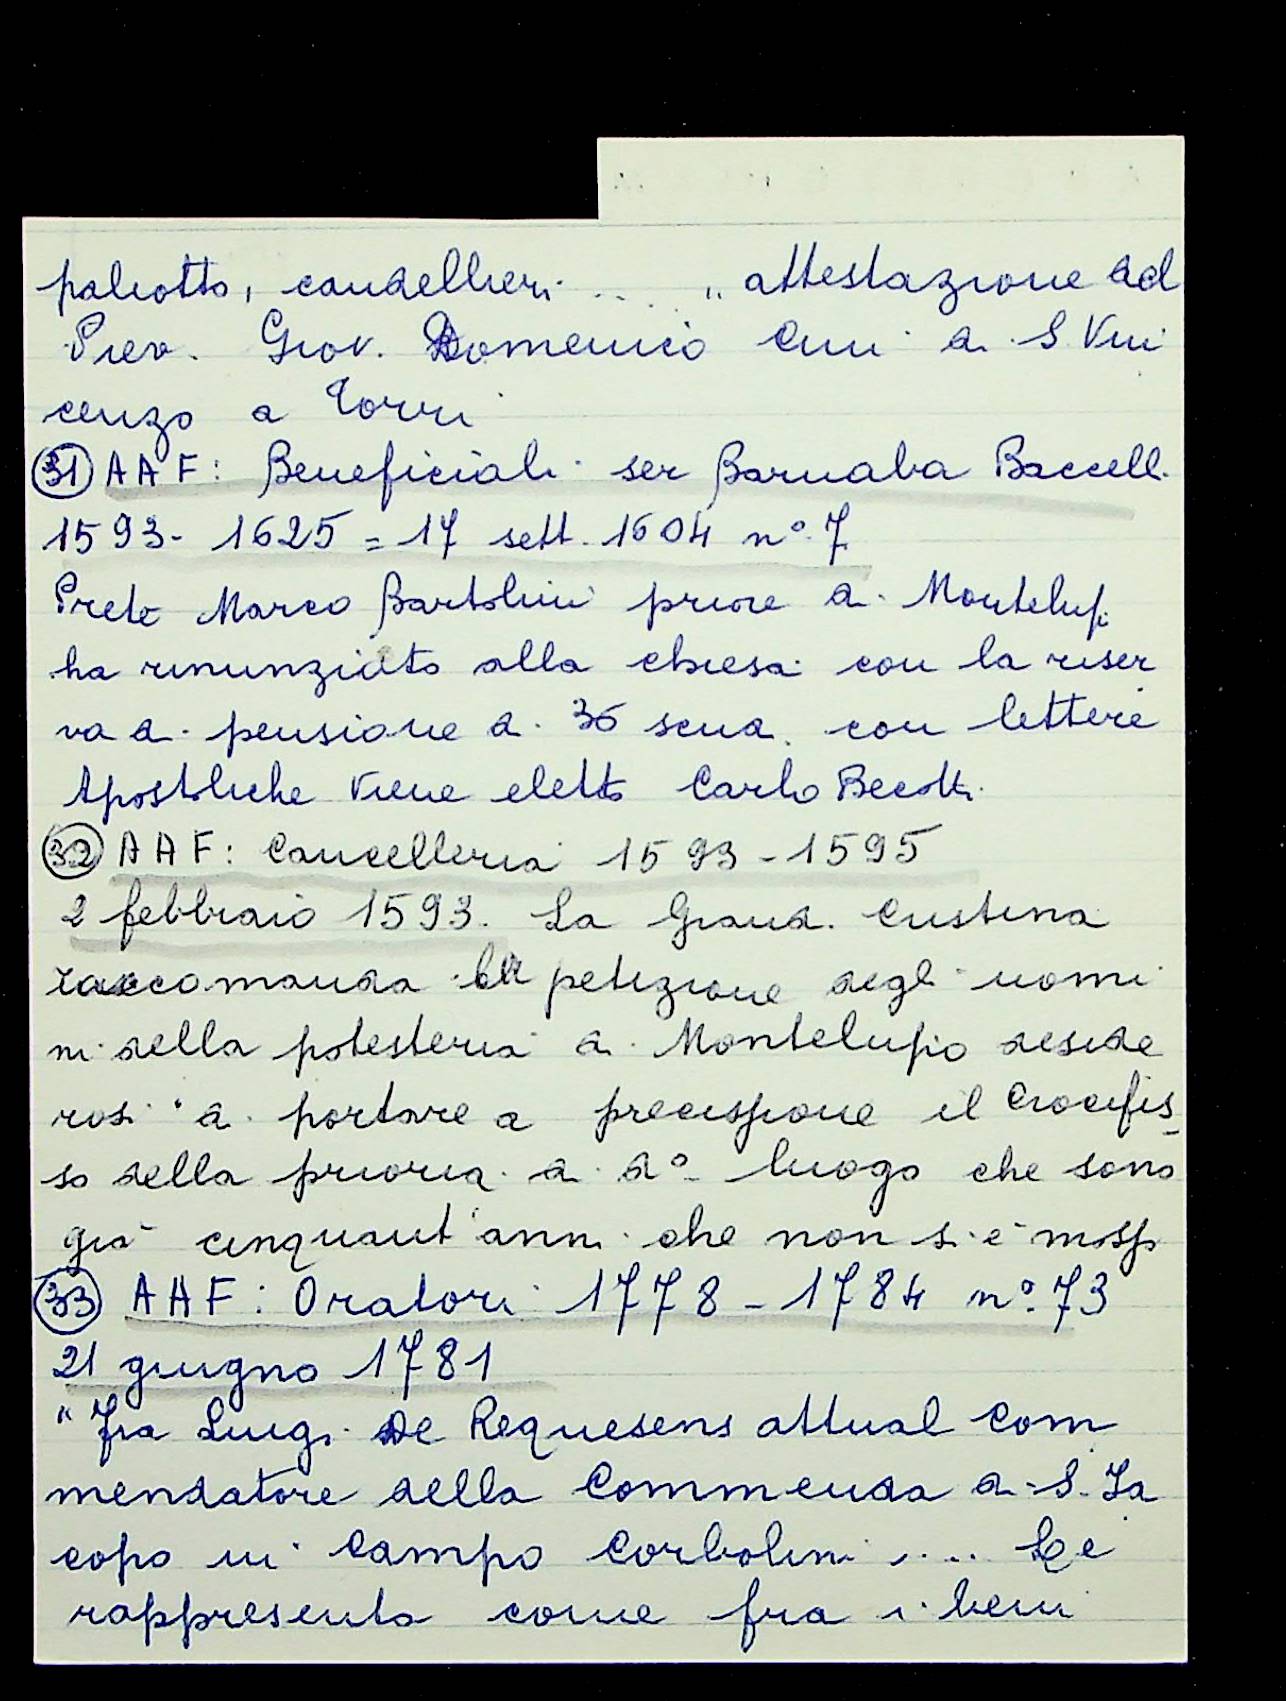 paliotto, candellieri .... „ attestazione del
Piev. Giov. Domenico Cini di S. Vin
cenzo a Torri
31 AAF: Beneficiali ser Barnaba Baccelli
1593 - 1625 = 17 sett. 1604 n° 7
Prete Marco Bartolini priore di Montelupo
ha rinunziato alla chiesa con la riser
va di pensione di 36 scudi con lettere
Apostoliche viene eletto Carlo Becotti
32 AAF: Cancelleria 1593 - 1595
2 febbraio 1593. La Grand. Cristina
raccomanda la petizione degli uomi
ni della potesteria di Montelupo deside
rosi "di portare a precissione il Crocifis
so della prioria di d° luogo che sono
già cinquant'anni che non si è mosso
33 AAF: Oratori 1778 - 1784 n° 73
21 giugno 1781
"Fra Luigi De Requesens attual com
mendatore della Commenda di S. Ja
copo in Campo Corbolini .... Le
rappresenta come fra i beni